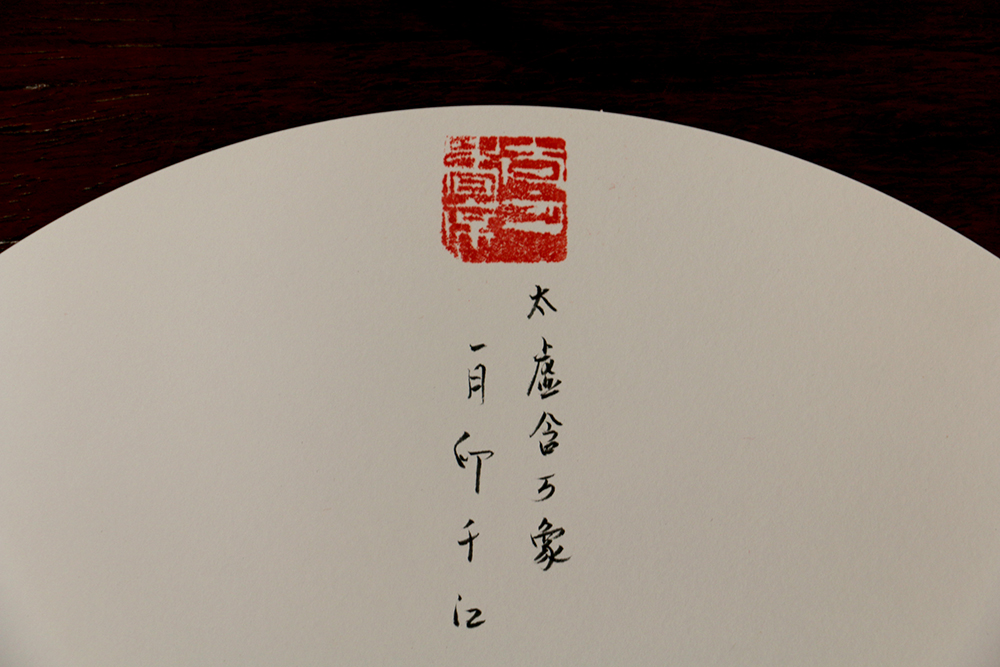 太虛含万象
一月印千江